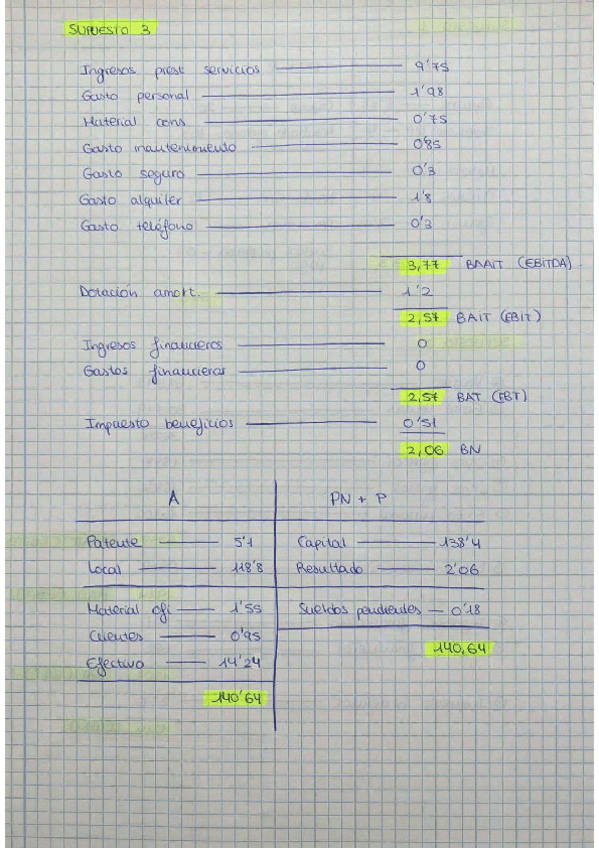 SUPUESTO 3
Ingresos prest servicios 9'75
Gasto personal 1'98
Material cons 0'75
Gasto mantenimiento 0'85
Gasto seguro 0'3
Gasto alquiler 1'8
Gasto teléfono 0'3
3,77 BAAIT (EBITDA)
Dotación amort. 1'2
2,57 BAIT (EBIT)
Ingresos financieros 0
Gastos financieros 0
2,57 BAT (EBT)
Impuesto beneficios 0'51
2,06 BN
A PN + P
Patente 5'1 Capital 138'4
Local 118'8 Resultado 2'06
Material ofi 1'55 Sueldos pendientes 0'18
Clientes 0'95 140,64
Efectivo 14'24
140'64